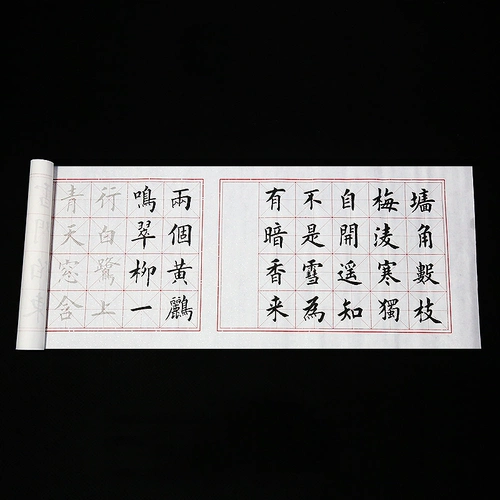 墻角數枝
梅淩寒獨
自開遥知
不是雪為
有暗香来
兩個黄鸝
鳴翠柳一
行白鷺上
青天窓含